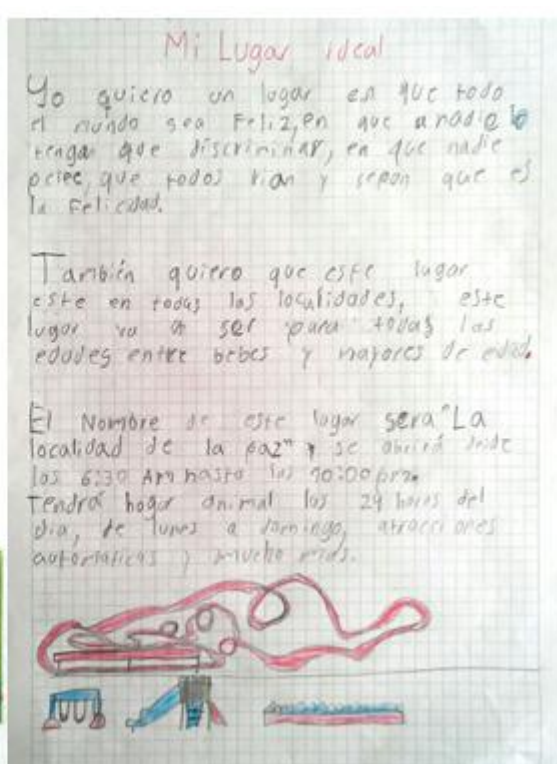 Mi Lugar ideal
Yo quiero un lugar en que todo
el mundo sea Feliz, en que a nadie lo
tengan que discriminar, en que nadie
pelee, que todos rian y sepan que es
la Felicidad.
También quiero que este lugar
este en todas las localidades, este
lugar va a ser para todas las
edades entre bebes y mayores de edad.
El Nombre de este lugar sera "La
localidad de la paz" y se abrirá desde
las 6:30 Am hasta las 10:00 pm.
Tendrá hogar animal las 24 horas del
dia, de lunes a domingo, atracciones
automaticas y mucho mas.